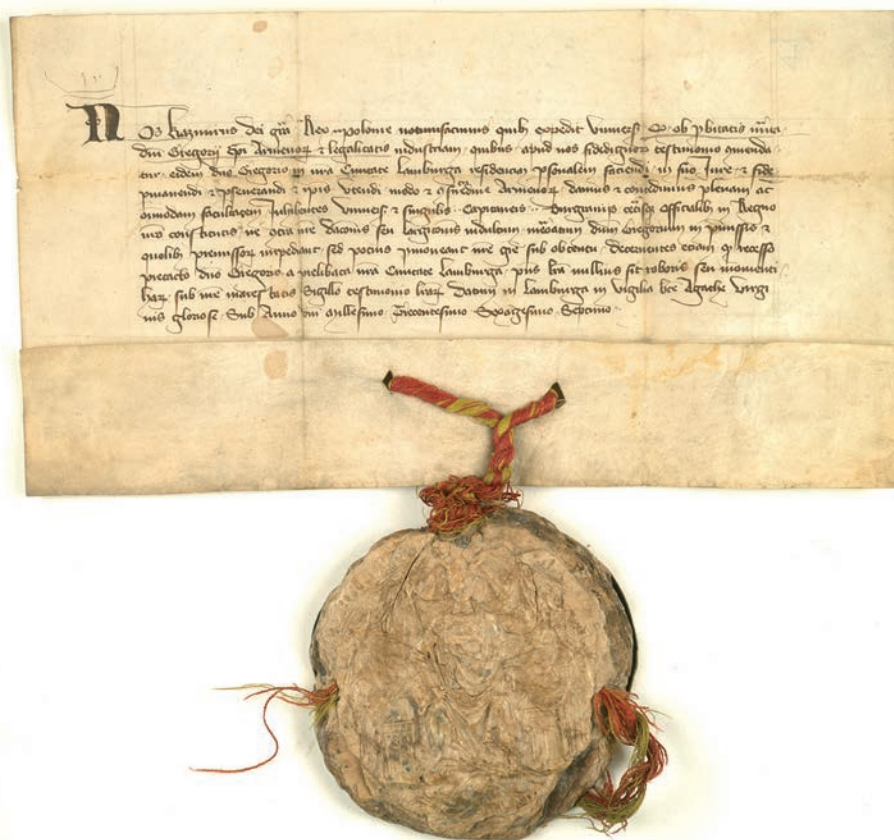 Nos Kazimirus dei gra Rex Polonie notumfacimus quibus expedit Universis Quod ob probitatis merita
dni Gregorii Epi Armenorum et legalitatis industriam quibus apud nos fidedignorum testimonio comenda
tur eidem dno Gregorio in nra Civitate Lamburga residenciam personalem faciendi in suo Jure et fide
permanendi et perseverandi et ipsis utendi modo et consuetudine Armenorum damus et concedimus plenam ac
omnimodam facultatem Inhibentes Universis et singulis Capitaneis Burgrabiis ceterisque Officialibus in Regno
nro constitutis ne contra nre dacionis seu largicionis indultum memoratum dnm Gregorium in premissis et
quolibet premissorum impediant sed pocius promoveant nre gracie sub obtentu decernentes eciam quod recesso
pretacto dno Gregorio a prelibata nra Civitate Lamburga presens lra nullius sit roboris seu momenti
harum sub nre maiestatis Sigillo testimonio lrarum Datum in Lamburga in vigilia bte Agathe Virgi
nis gloriose Sub Anno dni Millesimo Trecentesimo Sexagesimo Septimo